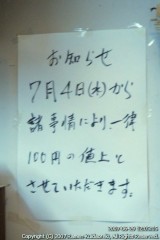 お知らせ
7月4日(木)から
諸事情により、一律
100円の値上げ
させていただきます。